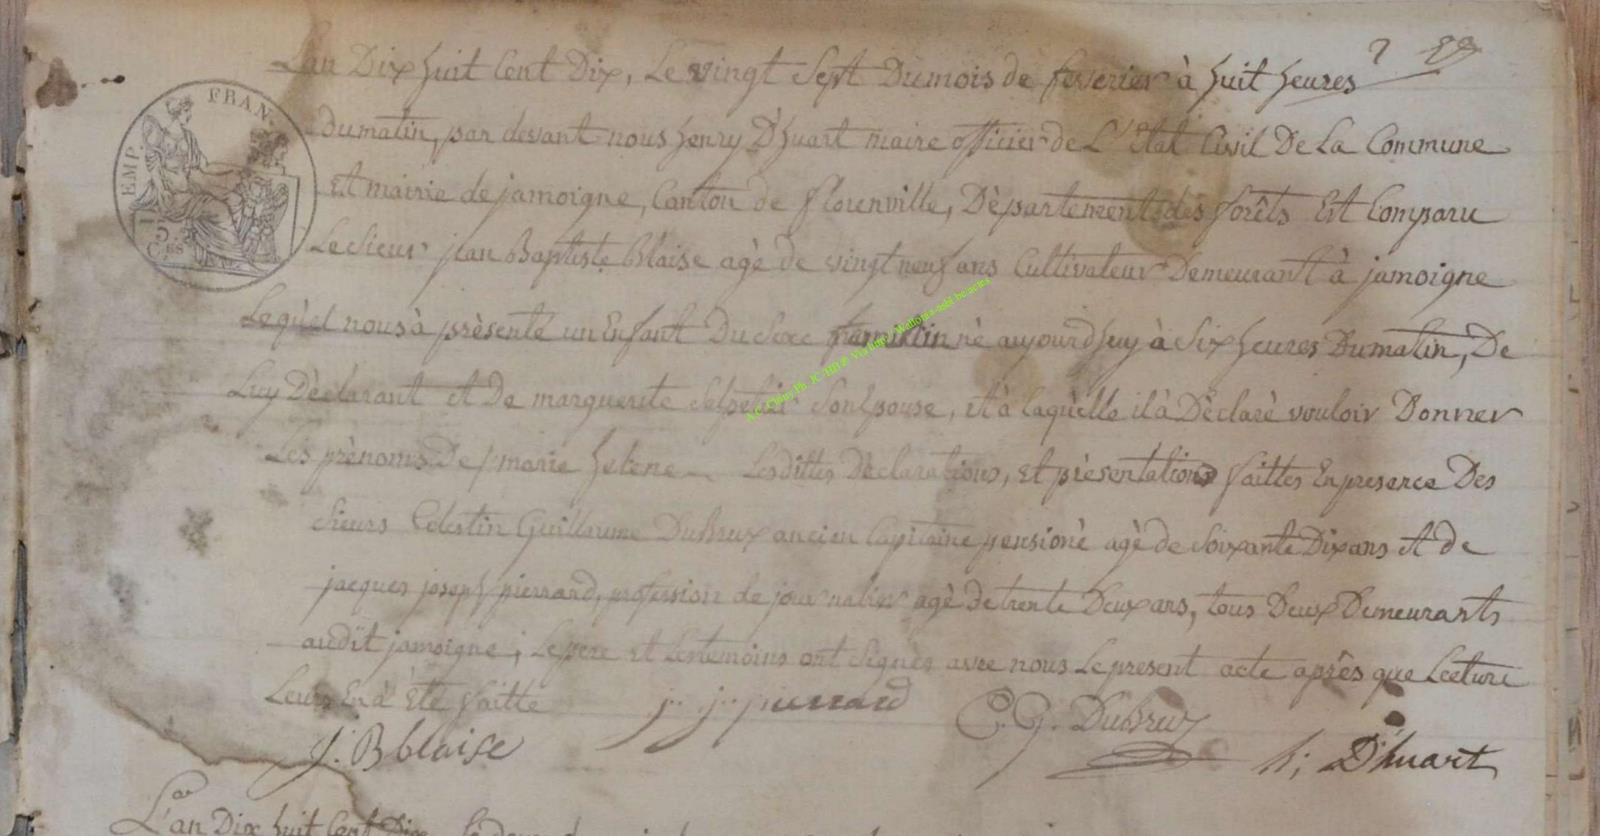 Lan Dix huit Cent Dix, Le vingt Sept Dumois de feverier à huit heures
FRAN.
EMP.
Dumatin, par devant nous henry D'huart maire officier de L'Etat Civil De La Commune
Et mairie de jamoigne, Canton de florenville, Dèpartement des forêts Est Comparu
Le Sieur jean Baptiste Blaise agè de vingt neuf ans Cultivateur Demeurant à jamoigne
Lequèl nous à prèsentè un Enfant Du Sexe nè aujourd huy à Six heures Dumatin, De
Luy Dèclarant Et De marguerite Son Epouse, Et à laquèlle il à Dèclarè vouloir Donner
Les prènoms De marie helene Lesdittes Dèclarations, Et prèsentations faittes En presence Des
Sieurs Celestin Guillaume Dubrux ancien Capitaine pensionè agè de Soixante Dix ans Et de
jacques joseph pierrard, profession de journalier agè de trente Deux ans, tous Deux Demeurants
audit jamoigne; Le pere Et Les temoins ont Signès avec nous Le present acte après que Lecture
Leur En à Etè faitte
j. j. pierrard
C. G. Dubrux
J. B blaise
h; D'huart
L'an Dix huit Cent Dix